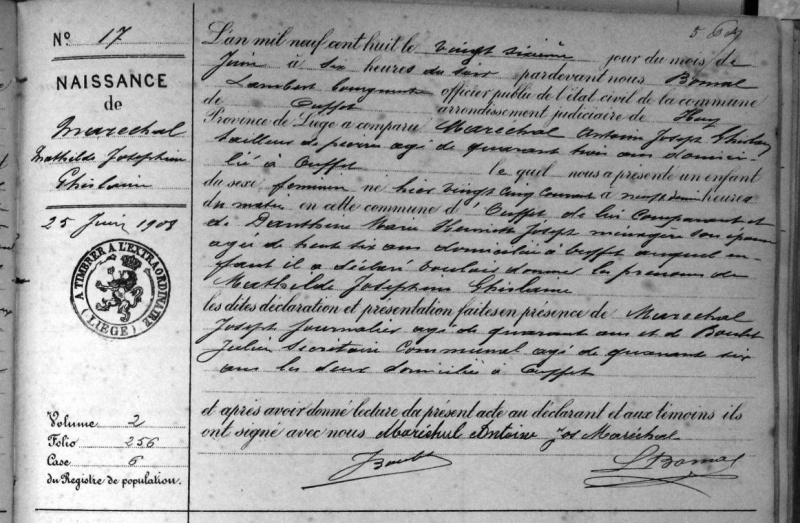 N° 17
NAISSANCE
de
Marechal
Mathilde Josephine
Ghislaine
25 Juin 1908
A TIMBRER A L'EXTRAORDINAIRE
(LIÈGE)
Volume 2
Folio 256
Case 6
du Registre de population.
L'an mil neuf cent huit le vingt sixième jour du mois de
Juin à six heures du soir pardevant nous Bomal
Lambert bourgmestre officier public de l'état civil de la commune
de Ouffet arrondissement judiciaire de Huy
Province de Liège a comparu Marechal Antoine Joseph Ghislain
tailleur de pierre agé de quarante trois ans domici-
lié à Ouffet le quel nous a présenté un enfant
du sexe feminin né hier vingt cinq courant à neuf heures
du matin en cette commune d'Ouffet, de lui comparant et
de Danthine Marie Henriette Joseph ménagère son épouse
agée de trente six ans domiciliée à Ouffet auquel en-
fant il a déclaré vouloir donner les prénoms de
Mathilde Josephine Ghislaine
les dites déclaration et présentation faites en présence de Marechal
Joseph journalier agé de quarante ans et de Boulet
Julien Secrétaire Communal agé de quarante six
ans les deux domiciliés à Ouffet
et après avoir donné lecture du présent acte au déclarant et aux témoins ils
ont signé avec nous Maréchal Antoine Jos Maréchal
JBoulet LBomal